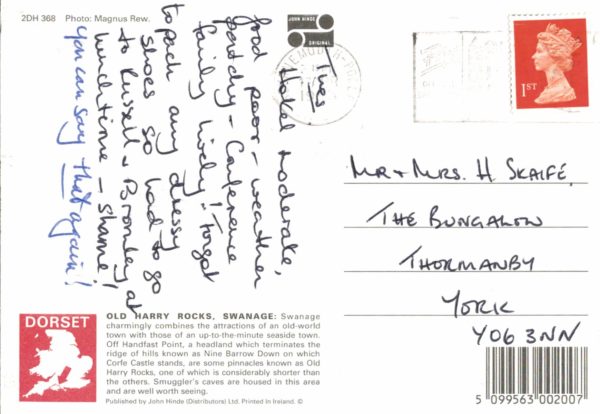 2DH 368 Photo: Magnus Rew.
JOHN HINDE
ORIGINAL
1ST
Tues
Hotel moderate,
food poor - weather
patchy - Conference
fairly lively! Forgot
to pack any dressy
shoes so had to go
to Russell & Bromley at
lunchtime - shame!
You can say that again!
MR + MRS. H SKAIFE,
THE BUNGALOW
THORMANBY
YORK
YO6 3NN
DORSET
OLD HARRY ROCKS, SWANAGE: Swanage
charmingly combines the attractions of an old-world
town with those of an up-to-the-minute seaside town.
Off Handfast Point, a headland which terminates the
ridge of hills known as Nine Barrow Down on which
Corfe Castle stands, are some pinnacles known as Old
Harry Rocks, one of which is considerably shorter than
the others. Smuggler's caves are housed in this area
and are well worth seeing.
Published by John Hinde (Distributors) Ltd. Printed in Ireland. ©
5 099563 002007